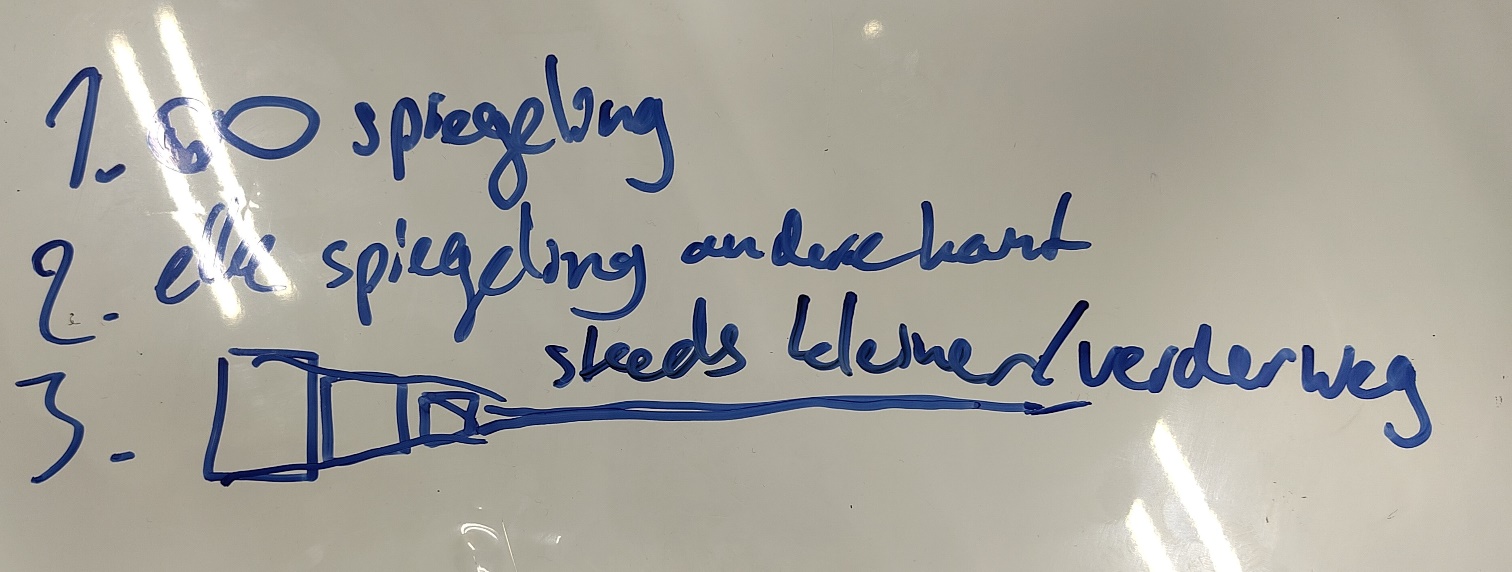 1. ∞ spiegeling
2. elke spiegeling andere kant
steeds kleiner/verder weg
3.